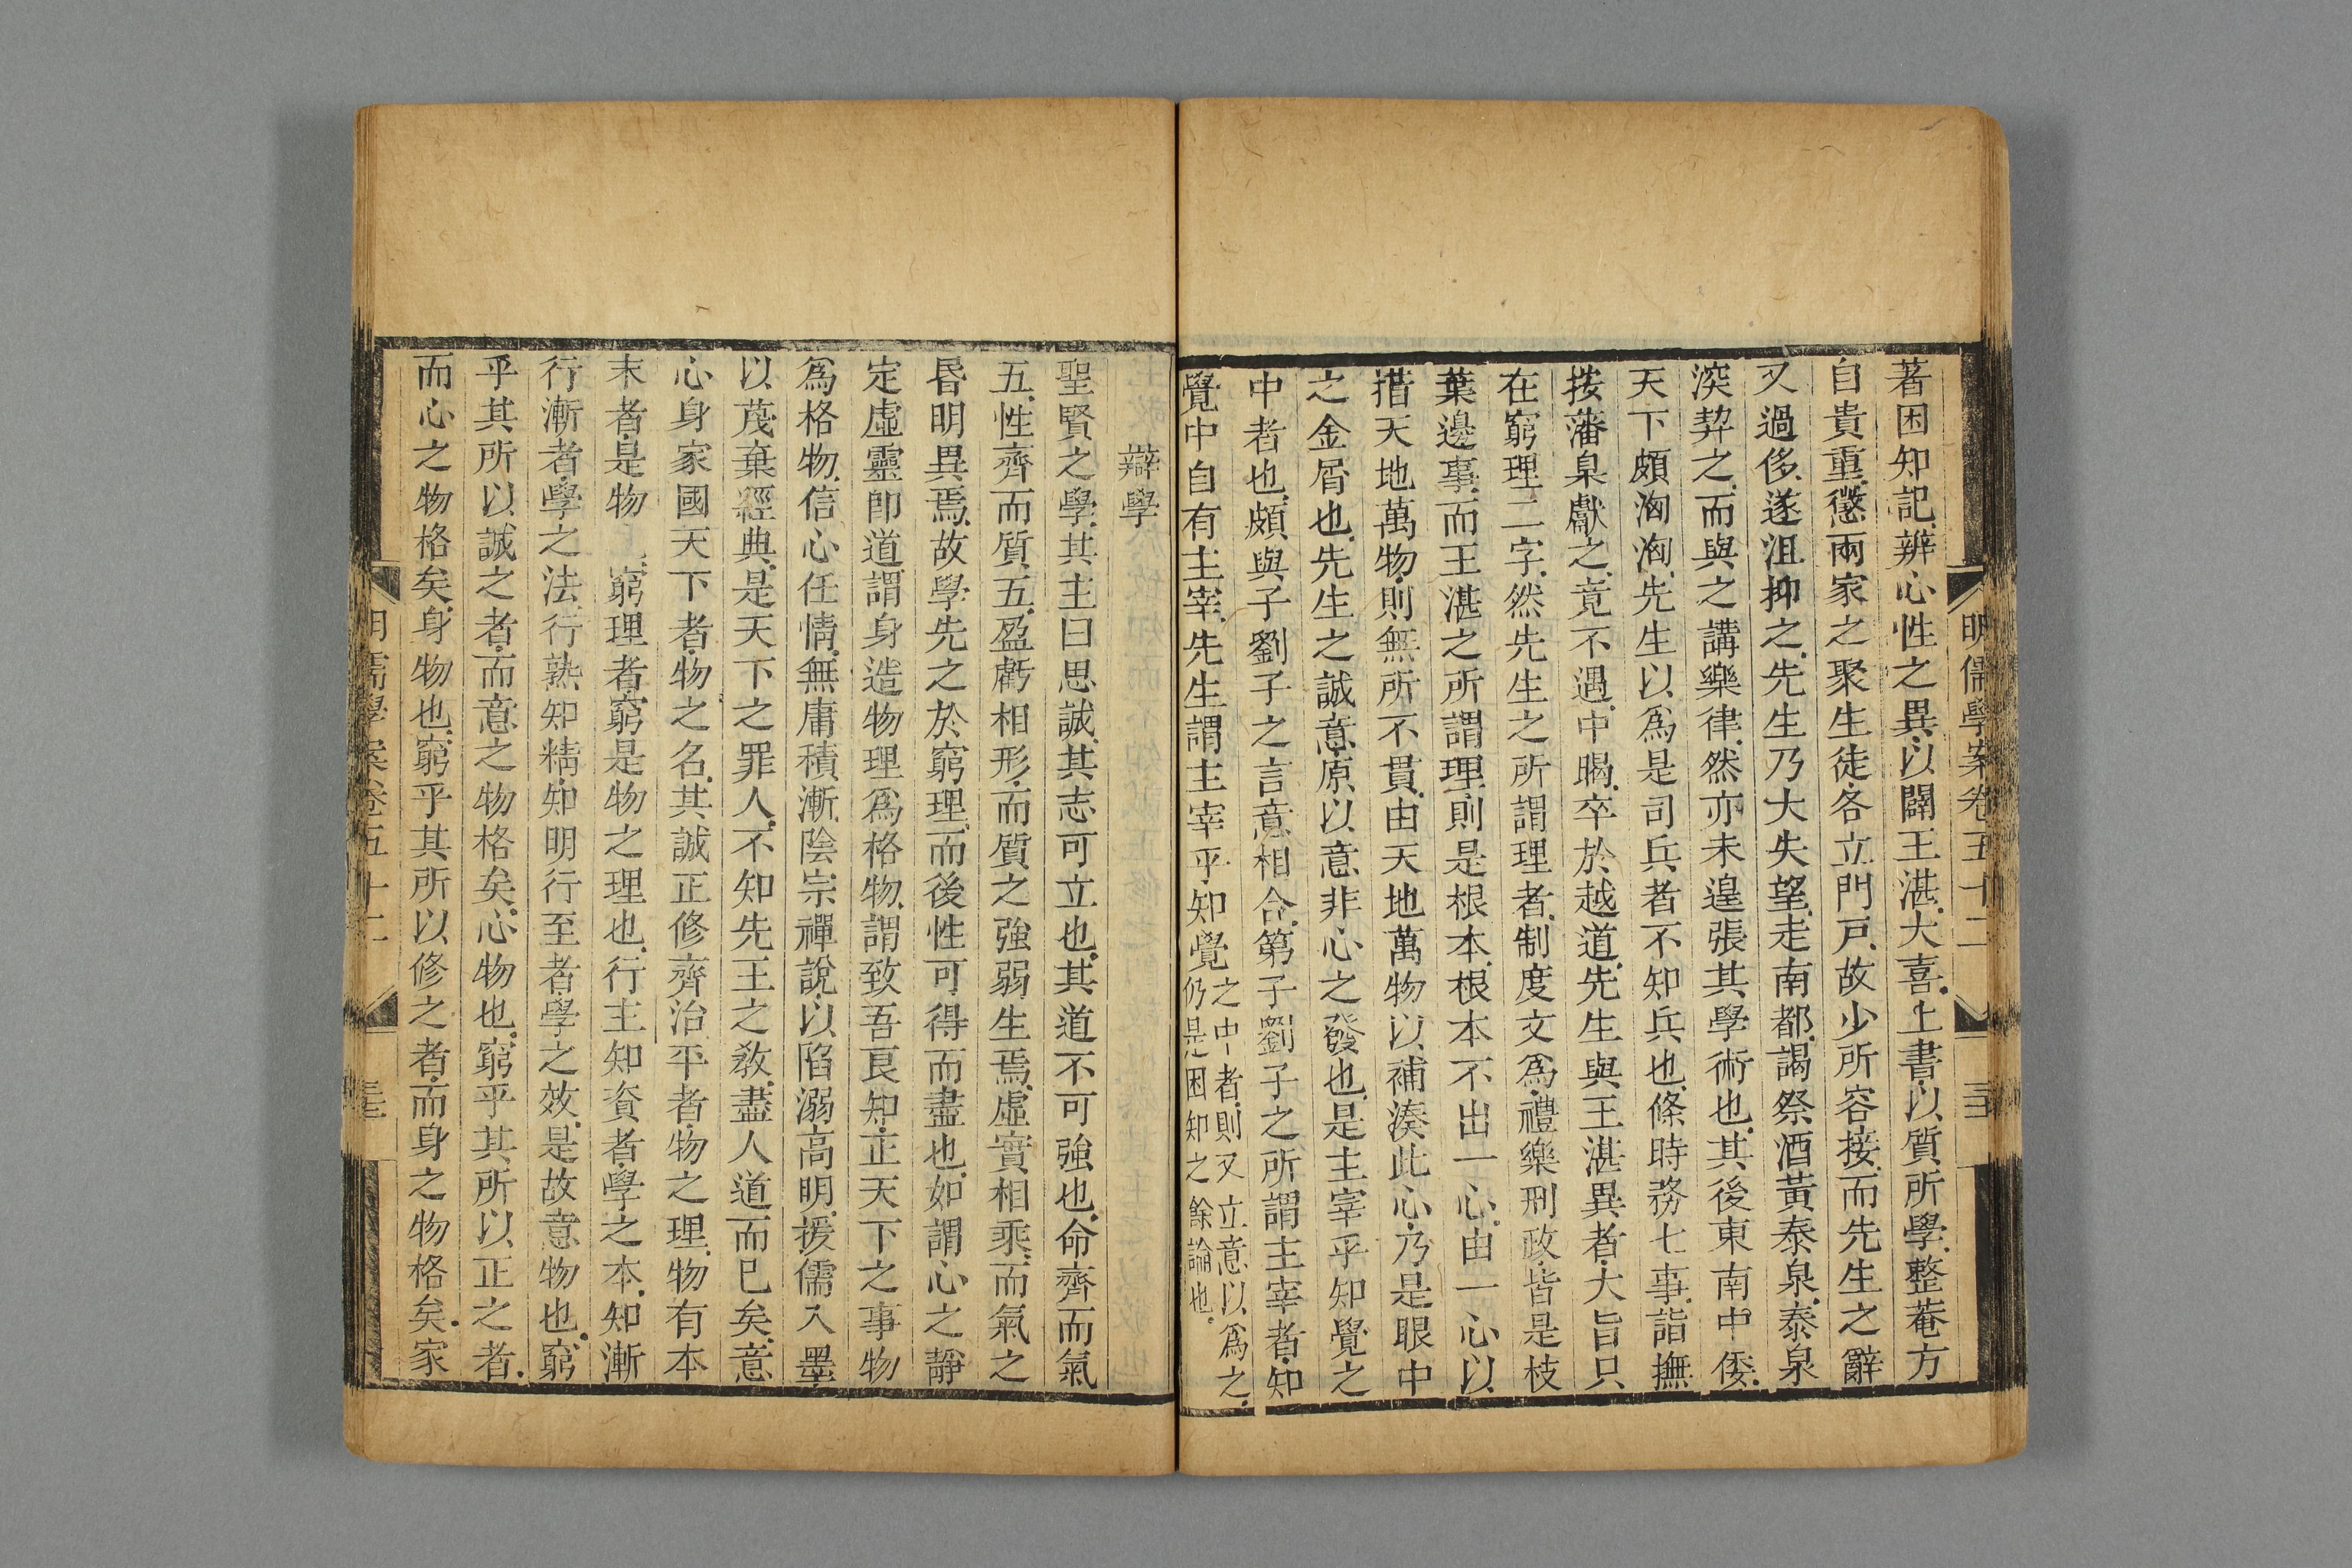 明儒學案卷五十二
著困知記辨心性之異以闢王湛大喜上書以質所學整菴方
自貴重懲兩家之聚生徒各立門戸故少所容接而先生之辭
又過侈遂沮抑之先生乃大失望走南都謁祭酒黃泰泉泰泉
深契之而與之講樂律然亦未遑張其學術也其後東南中倭
天下頗洶洶先生以爲是司兵者不知兵也條時務七事詣撫
按藩臬獻之竟不遇中暍卒於越道先生與王湛異者大旨只
在窮理二字然先生之所謂理者制度文爲禮樂刑政皆是枝
葉邊事而王湛之所謂理則是根本根本不出一心由一心以
措天地萬物則無所不貫由天地萬物以補湊此心乃是眼中
之金屑也先生之誠意原以意非心之發也是主宰乎知覺之
中者也頗與子劉子之言意相合第子劉子之所謂主宰者知
覺中自有主宰先生謂主宰乎知覺之中者則又立意以爲之
仍是困知之餘論也
辯學
聖賢之學其主曰思誠其志可立也其道不可強也命齊而氣
五性齊而質五盈虧相形而質之強弱生焉虛實相乘而氣之
昏明異焉故學先之於窮理而後性可得而盡也如謂心之靜
定虛靈卽道謂身造物理爲格物謂致吾良知正天下之事物
爲格物信心任情無庸積漸陰宗禪說以陷溺高明援儒入墨
以蔑棄經典是天下之罪人不知先王之敎盡人道而已矣意
心身家國天下者物之名其誠正修齊治平者物之理物有本
末者是物 窮理者窮是物之理也行主知資者學之本知漸
行漸者學之法行熟知精知明行至者學之效是故意物也窮
乎其所以誠之者而意之物格矣心物也窮乎其所以正之者
而心之物格矣身物也窮乎其所以修之者而身之物格矣家
明儒學案卷五十二